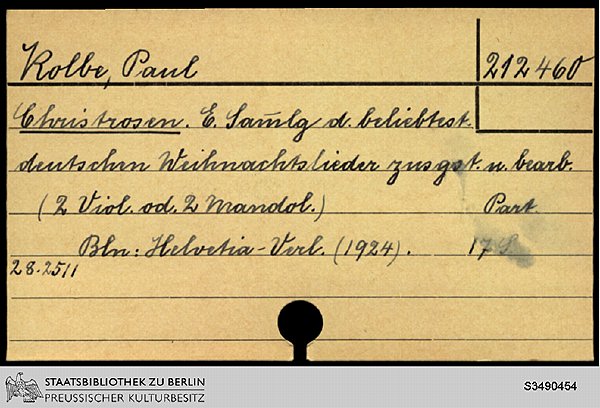 Kolbe, Paul
212460
Christrosen. E. Sam̄lg d. beliebtest.
deutschen Weihnachtslieder zusgst. u. bearb.
(2 Viol. od. 2 Mandol.) Part.
Bln: Helvetia-Verl. (1924). 17 S.
28.2511
STAATSBIBLIOTHEK ZU BERLIN
PREUSSISCHER KULTURBESITZ
S3490454